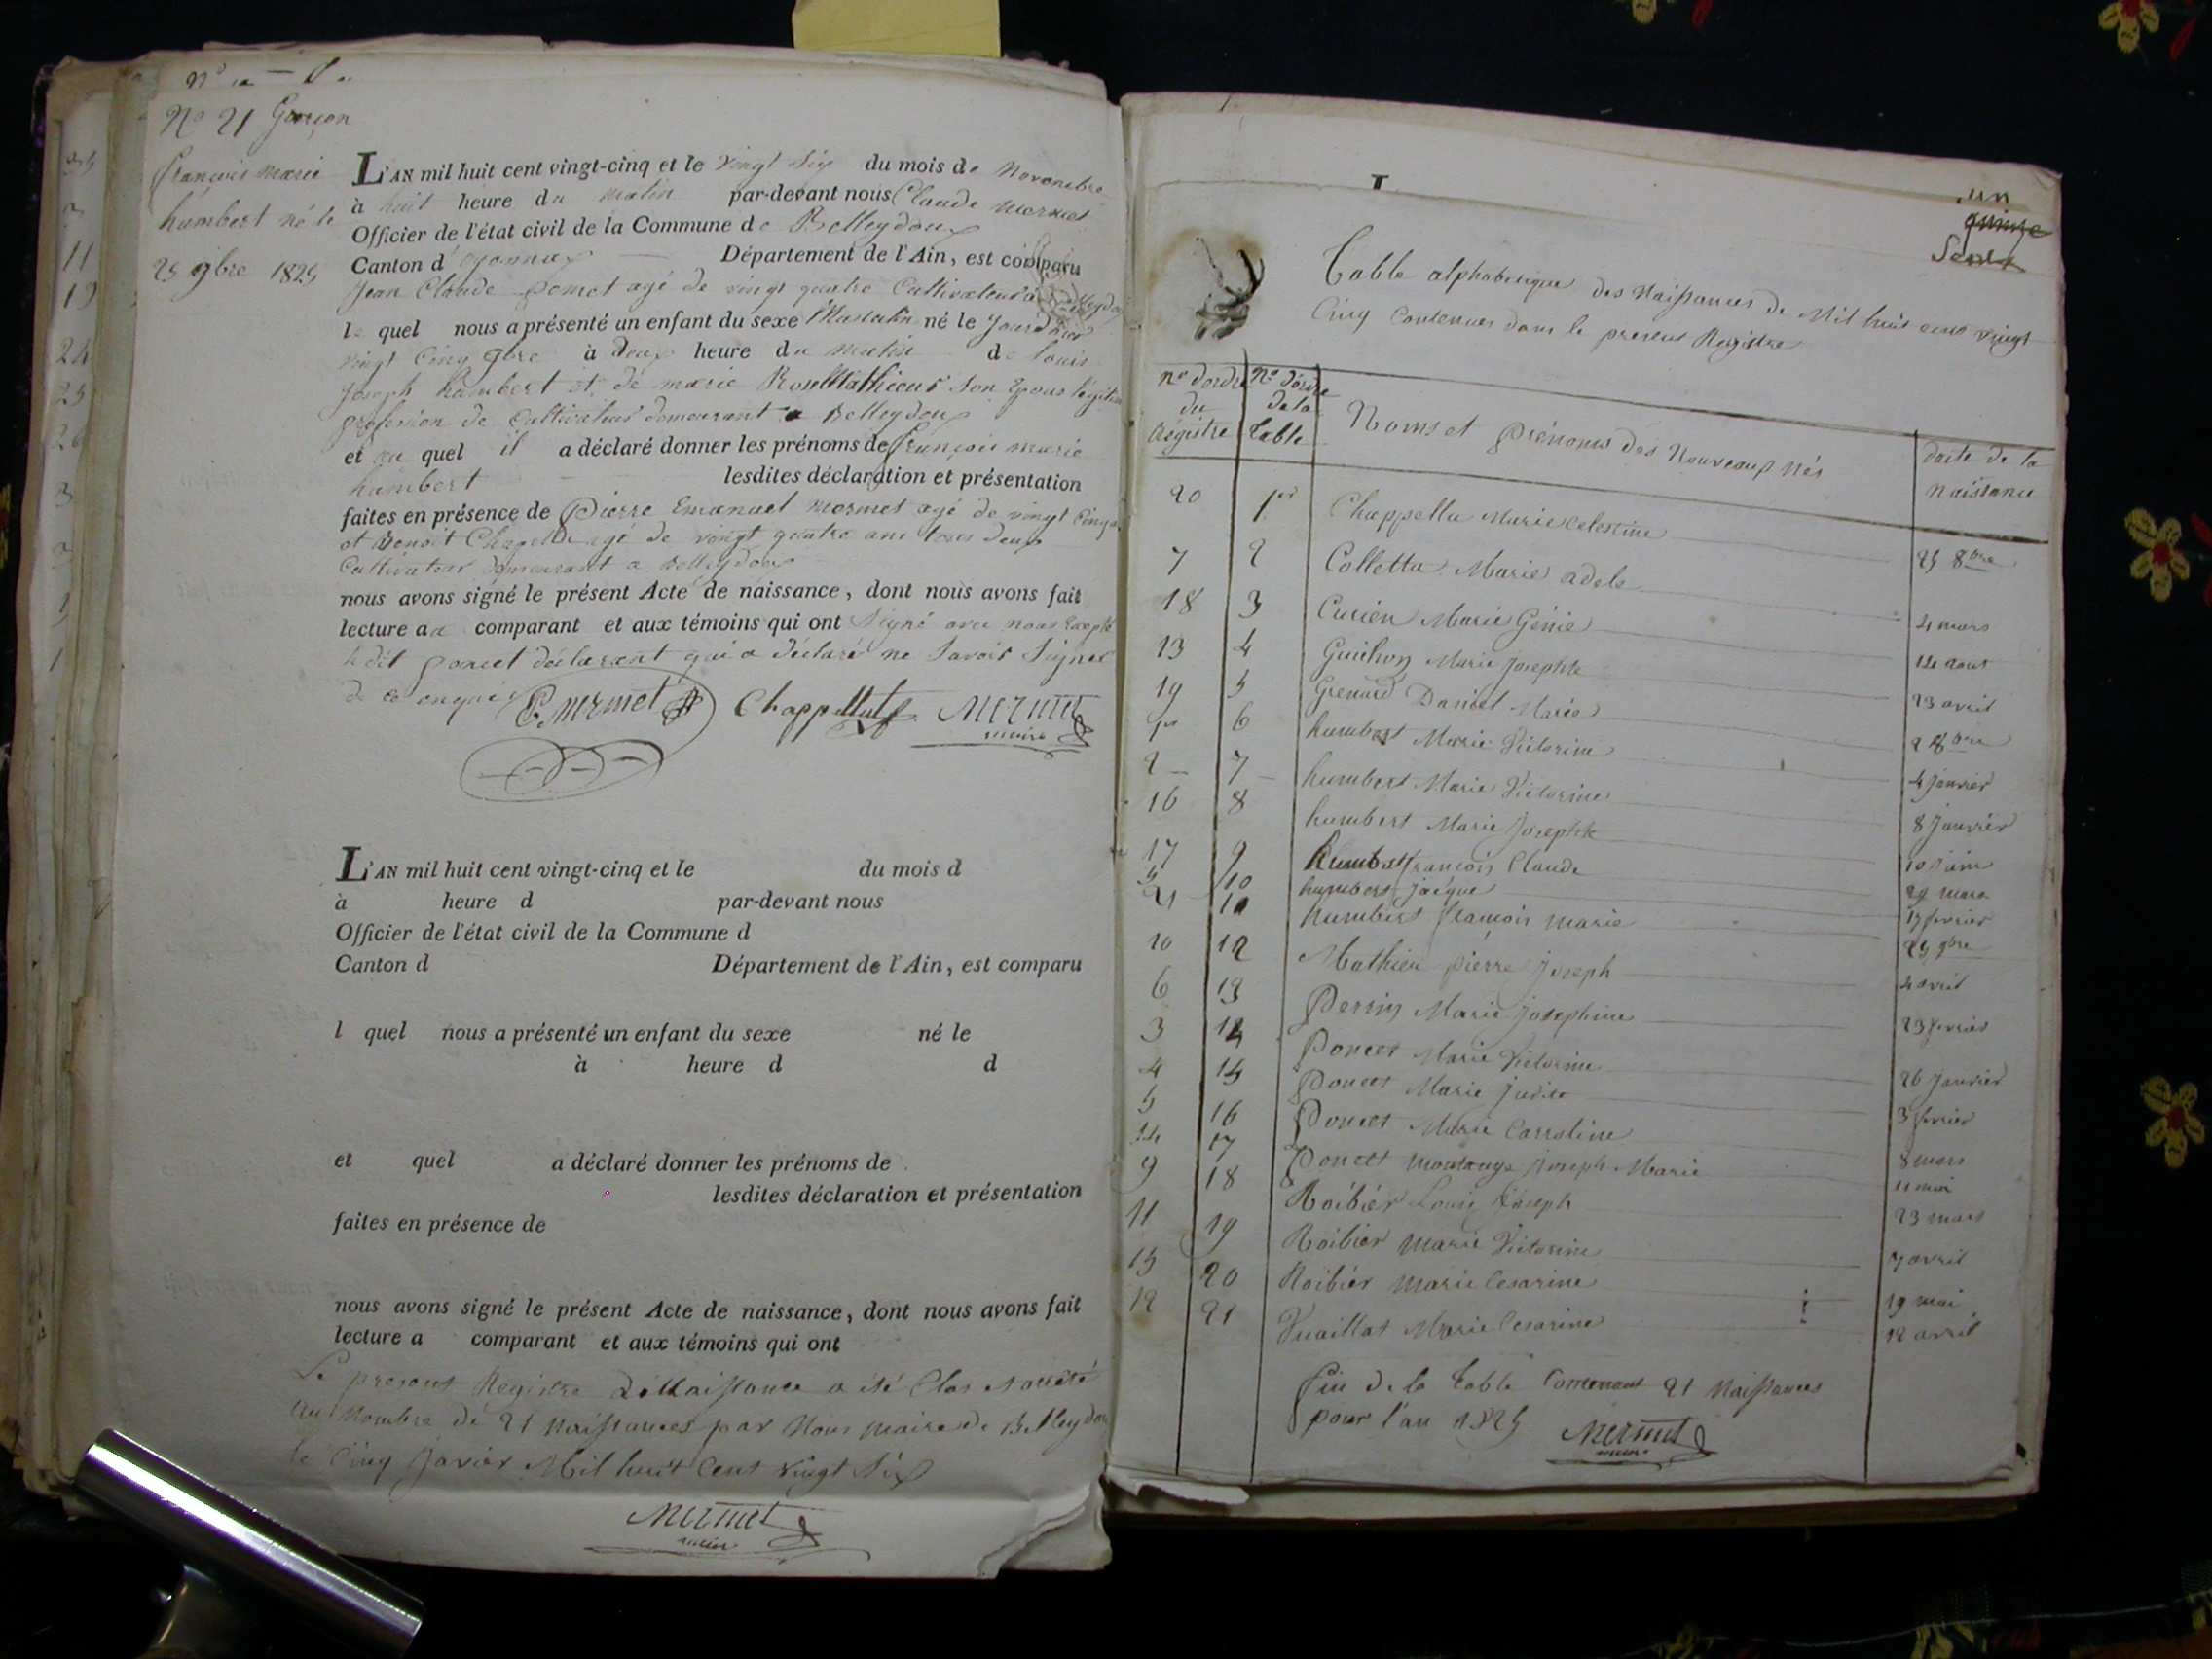 No 21 Garçon
françois marie
humbert né le
25 9bre 1825
L'AN mil huit cent vingt-cinq et le vingt six du mois de Novembre
à huit heure du matin par-devant nous Claude mermet
Officier de l'état civil de la Commune de Belleydoux
Canton d'oyonnax Département de l'Ain, est comparu
Jean Claude poncet agé de vingt quatre Cultivateur a Belleydoux
le quel nous a présenté un enfant du sexe Masculin né le
vingt Cinq 9bre à deux heure du matin de louis
Joseph humbert et de marie Rose Mathieu son Epouse légitime
profession de Cultivateur demeurant a Belleydoux
et au quel il a déclaré donner les prénoms de françois marie
humbert lesdites déclaration et présentation
faites en présence de Pierre Emanuel mermet agé de vingt Cinq
et Benoit Chapelle agé de vingt quatre ans tous deux
Cultivateur demeurant a Belleydoux
nous avons signé le présent Acte de naissance, dont nous avons fait
lecture au comparant et aux témoins qui ont Signé avec nous Excepté
le dit poncet déclarant qui a déclaré ne Savoir Signer
de ce enquis P. Mermet Chappellut Mermet
maire
L'AN mil huit cent vingt-cinq et le du mois d
à heure d par-devant nous
Officier de l'état civil de la Commune d
Canton d Département de l'Ain, est comparu
l quel nous a présenté un enfant du sexe né le
à heure d d
et quel a déclaré donner les prénoms de
lesdites déclaration et présentation
faites en présence de
nous avons signé le présent Acte de naissance, dont nous avons fait
lecture a comparant et aux témoins qui ont
Le present Registre de Naissance a été Clos et arrêté
au Nombre de 21 Naissances par Nous maire de Belleydoux
le Cinq Javier Mil huit Cent vingt Six
Mermet
maire
un
quinze
Table alphabetique des Naissances de Mil huit cent vingt
Cinq Contenues dans le present Registre
no d'ordre du Registre No d'ordre de la table Noms et prénoms des Nouveaux Nés date de la Naissance
20 1er Chappellu Marie Celestine 25 8bre
7 2 Collettu Marie adele 4 mars
18 3 Curien Marie Génie 14 aout
13 4 Guichon Marie josephte 23 avril
19 5 Grenard Daniel Marie 2 8bre
1er 6 humbert Marie Victorine 4 janvier
2 7 humbert Marie Victorine 8 Janvier
16 8 humbert Marie Josephte 10 juin
17 9 humbert françois Claude 29 mars
10 humbert jacque 17 fevrier
21 11 humbert françois marie 25 9bre
10 12 Mathieu pierre Joseph 4 avril
6 13 Perrin Marie josephine 23 fevrier
3 14 Poncet Marie Victorine 26 Janvier
4 15 Poncet Marie Judite 3 fevrier
5 16 Poncet Marie Carroline 8 mars
14 17 Poncet montange Joseph Marie 11 mai
9 18 Roibier Louis Joseph 23 mars
11 19 Roibier Marie Victorine 7 avril
15 20 Roibier Marie Cesarine 19 mai
12 21 Vuaillat Marie Cesarine 12 avril
fin de la table Contenant 21 Naissances
pour l'an 1825 Mermet
maire